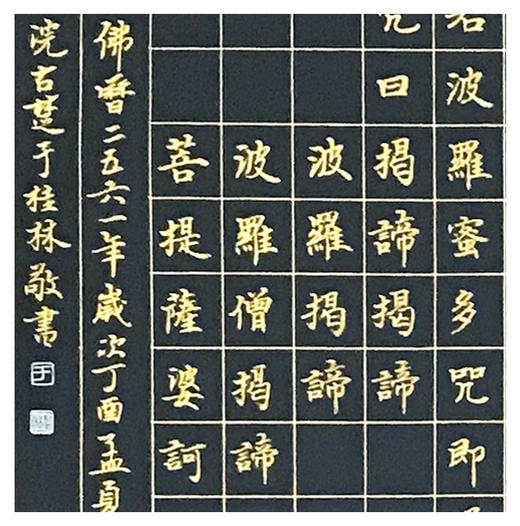 若波羅蜜多咒即
咒曰揭諦揭諦
波羅揭諦
波羅僧揭諦
菩提薩婆訶
佛曆二五六一年歲次丁酉孟夏
浣古楚于桂林敬書
于